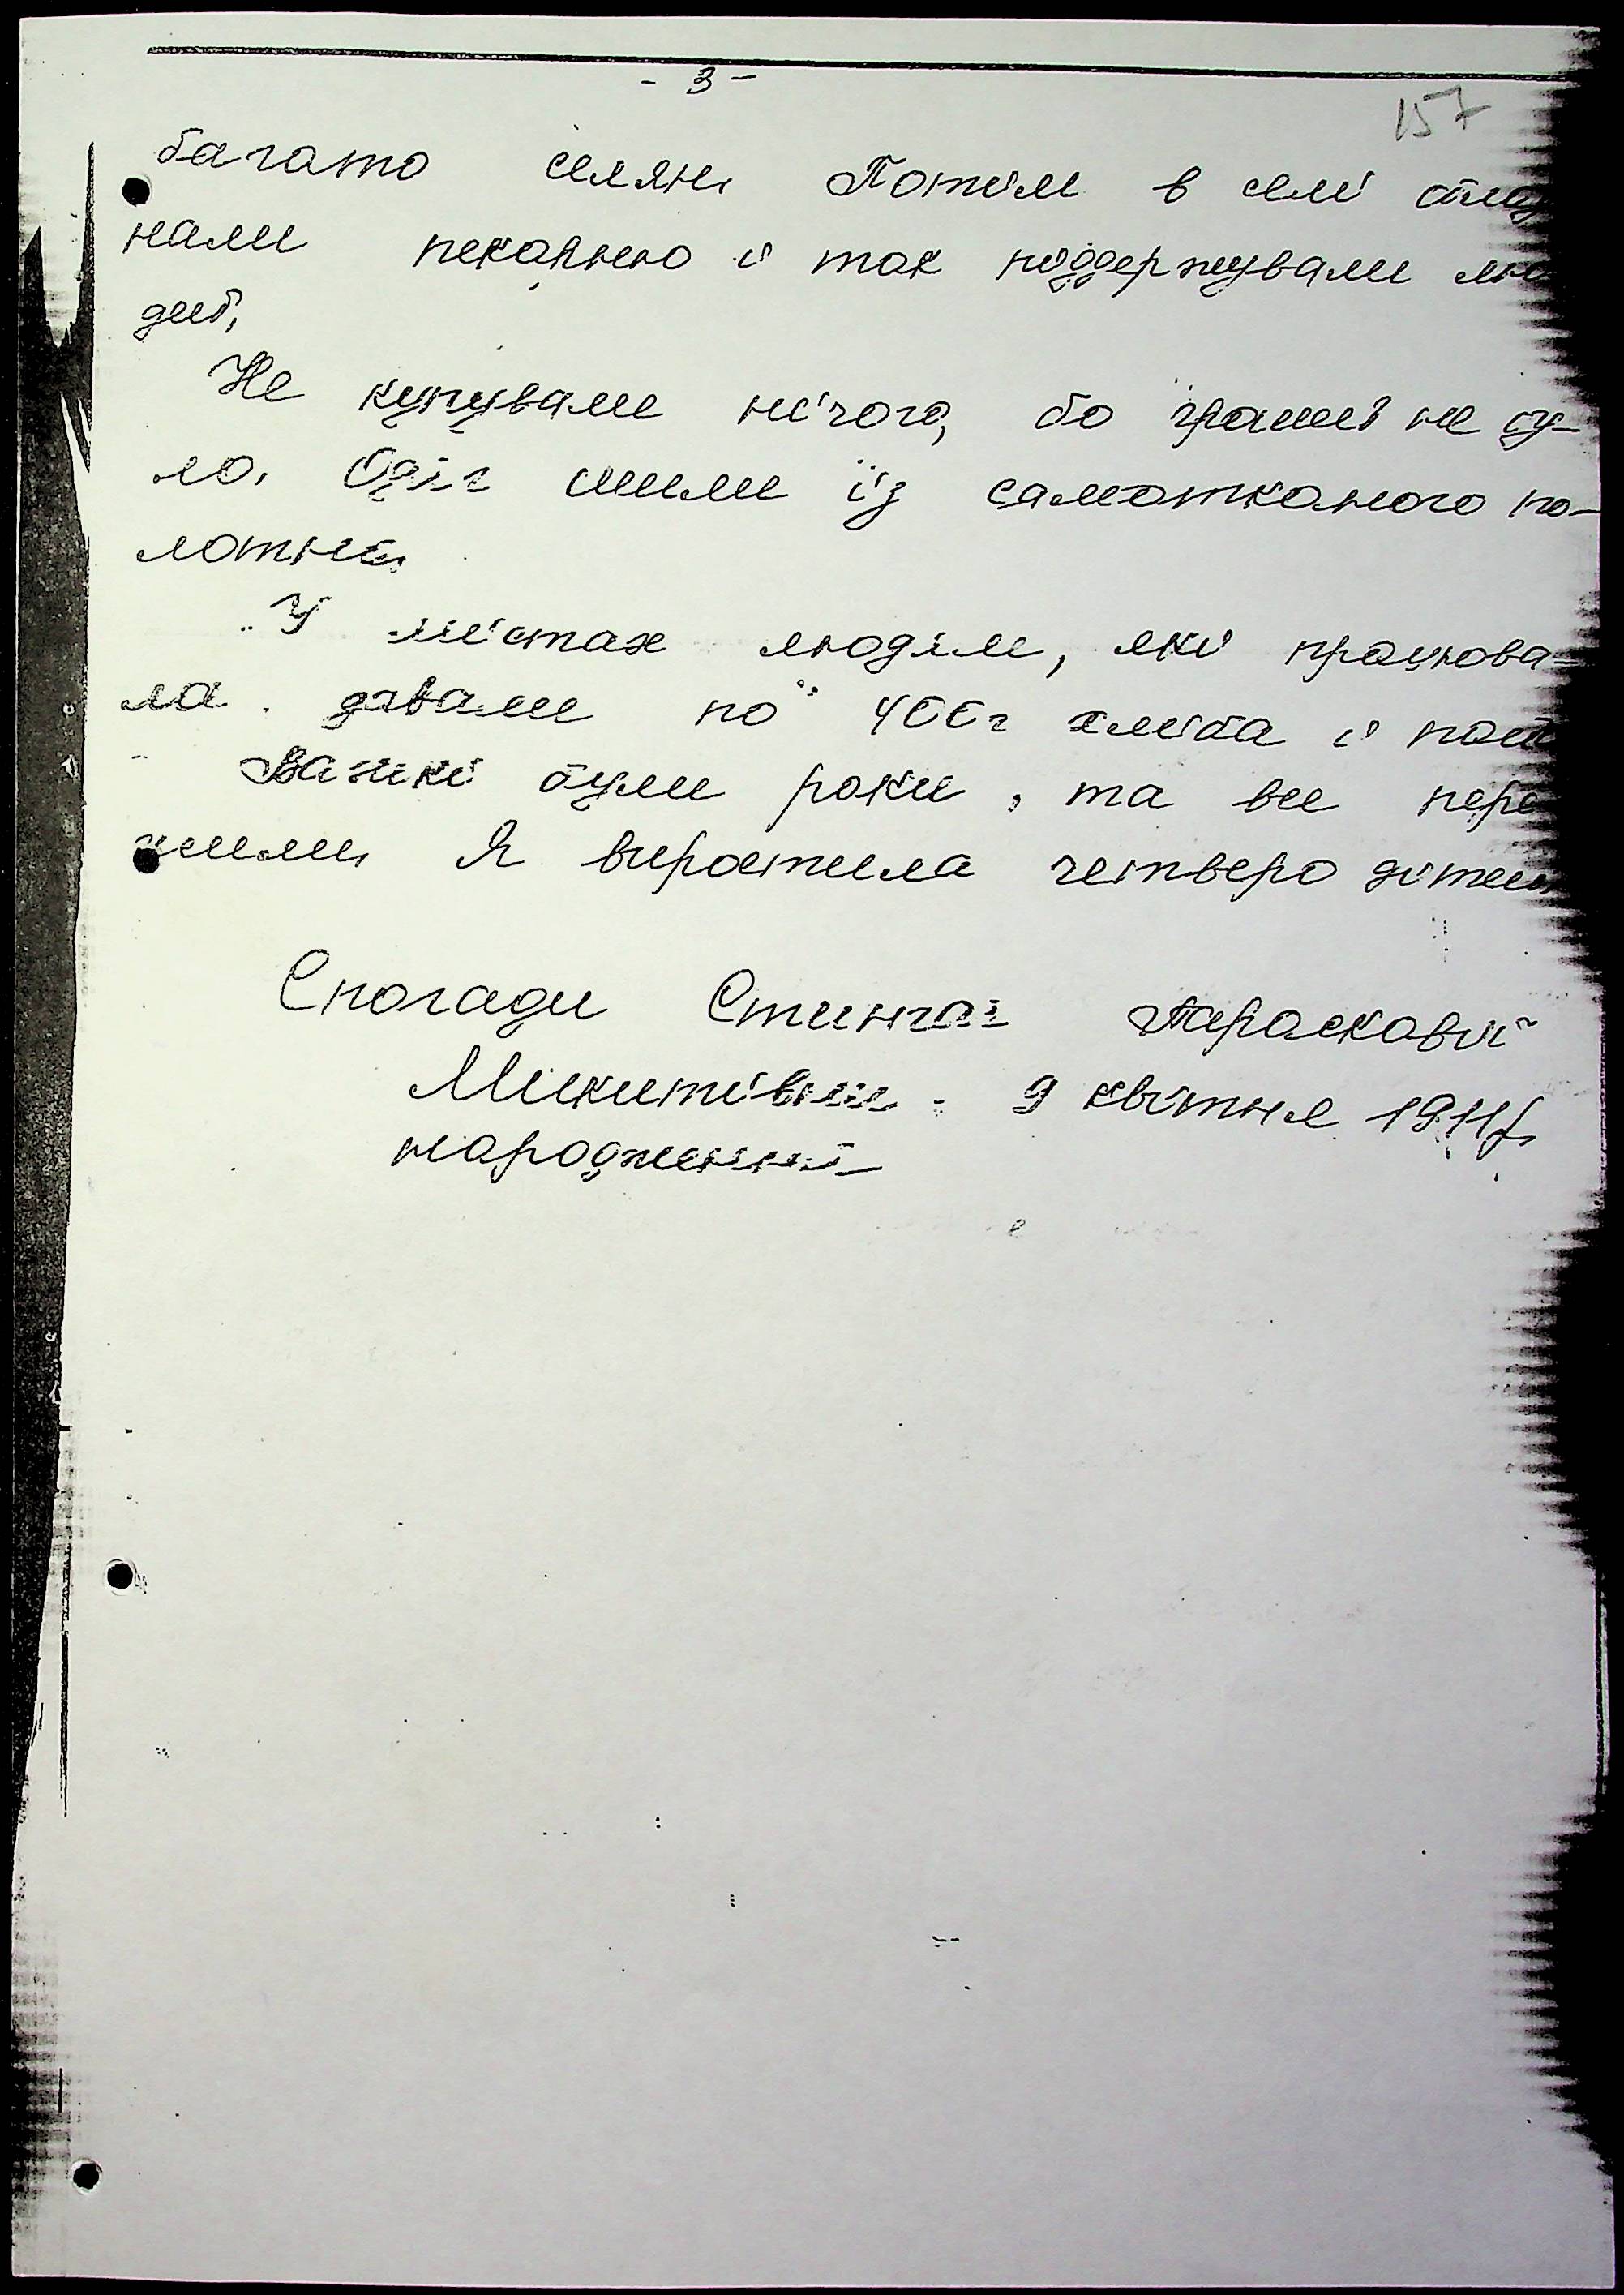 - 3 -
157
багато селян. Потім в селі
нали пекарню і так піддержували лю
дей.
Не купували нічого, бо грошей не бу-
ло. Одяг шили із самотканого по-
лотна.
У містах людям, які працюва-
ла давали по 400г хліба і
Важкі були роки, та все пере
жили. Я виростила четверо дітей
Спогади Парасковії
Микитівни 9 квітня 1911р.
народження